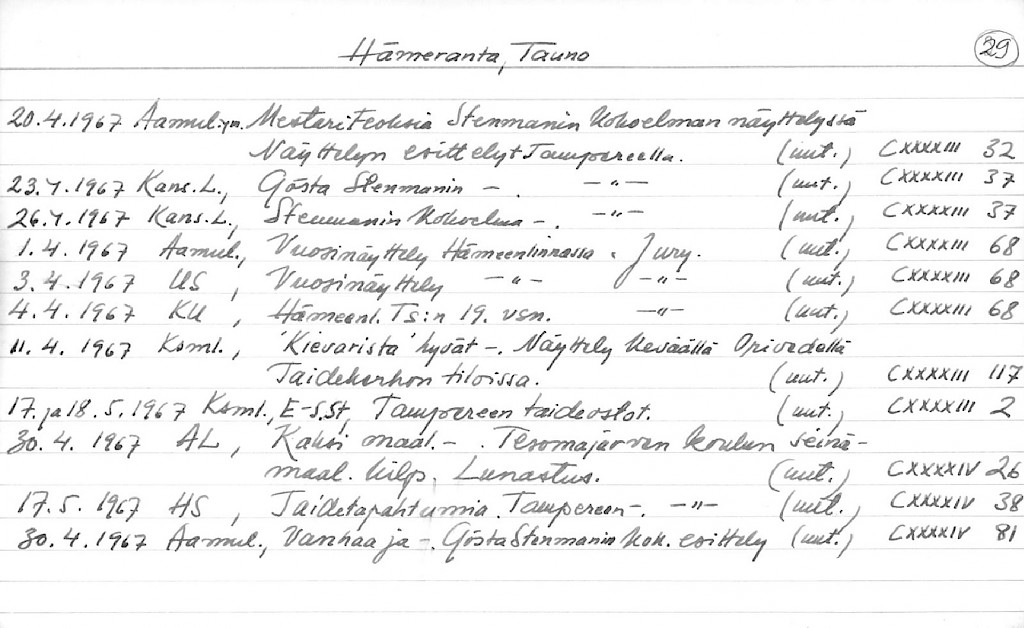 Hämeranta, Tauno 29
20.4.1967 Aamul. ym. Mestariteoksia Stenmanin Kokoelman näyttelyssä
Näyttelyn esittelyt Tampereella. (mt.) CXXXXIII 32
23.4.1967 Kans.L., Gösta Stenmanin – . –"– (mt.) CXXXXIII 37
26.4.1967 Kans.L., Stenmanin Kokoelma –. –"– (mt.) CXXXXIII 37
1.4.1967 Aamul., Vuosinäyttely Hämeenlinnassa. Jury. (mt.) CXXXXIII 68
3.4.1967 US, Vuosinäyttely –"– –"– (mt.) CXXXXIII 68
4.4.1967 KU, Hämeenl. Ts:n 19. vsn. –"– (mt.) CXXXXIII 68
11.4.1967 Ksml., 'Kievarista' hyvät –. Näyttely Keväällä Orivedellä
Taidekerhon tiloissa. (mt.) CXXXXIII 117
17. ja 18.5.1967 Ksml., E-S.St, Tampereen taideostot. (mt.) CXXXXIII 2
30.4.1967 AL, Kaksi maal. –. Tesomajärven koulun seinä-
maal. kilp. Lunastus. (mt.) CXXXXIV 26
17.5.1967 HS, Taidetapahtumia Tampereen –. –"– (mt.) CXXXXIV 38
30.4.1967 Aamul., Vanhaa ja –. Gösta Stenmanin Kok. esittely (mt.) CXXXXIV 81